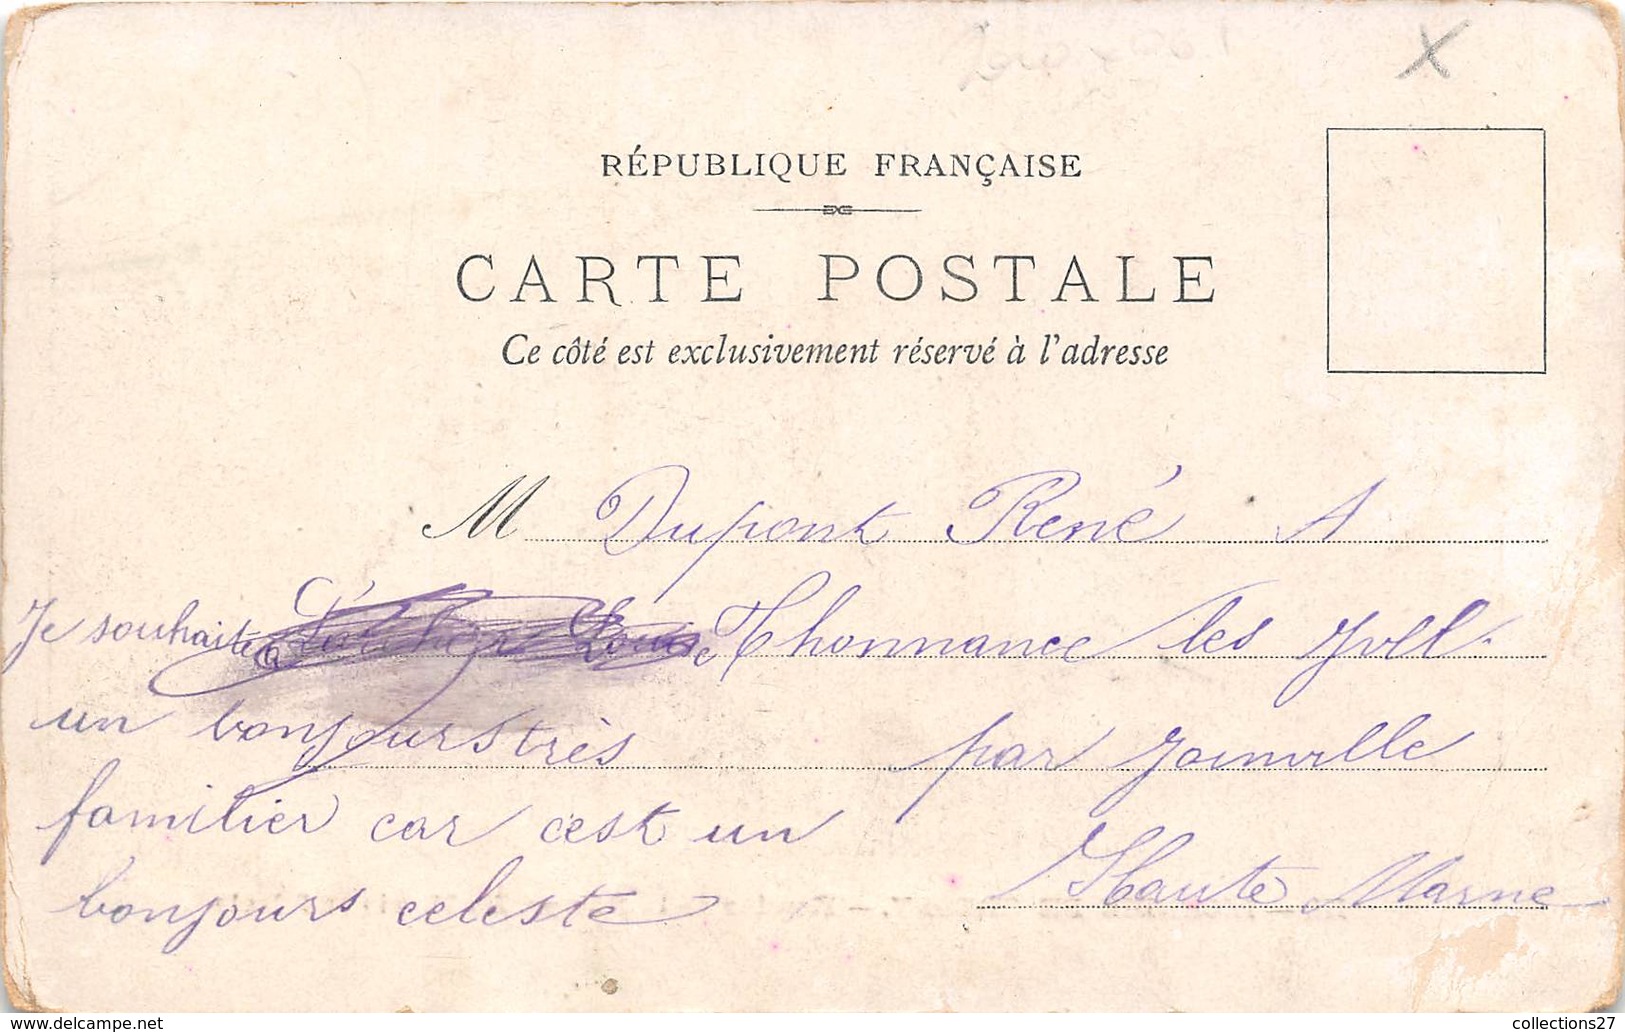 RÉPUBLIQUE FRANÇAISE
CARTE POSTALE
Ce côté est exclusivement réservé à l'adresse
M Dupont René A
Thonnance les Joll.
par Joinville
Haute Marne
Je souhaite a
un bonjours très
familier car c'est un
bonjours celeste
www.delcampe.net
collections27